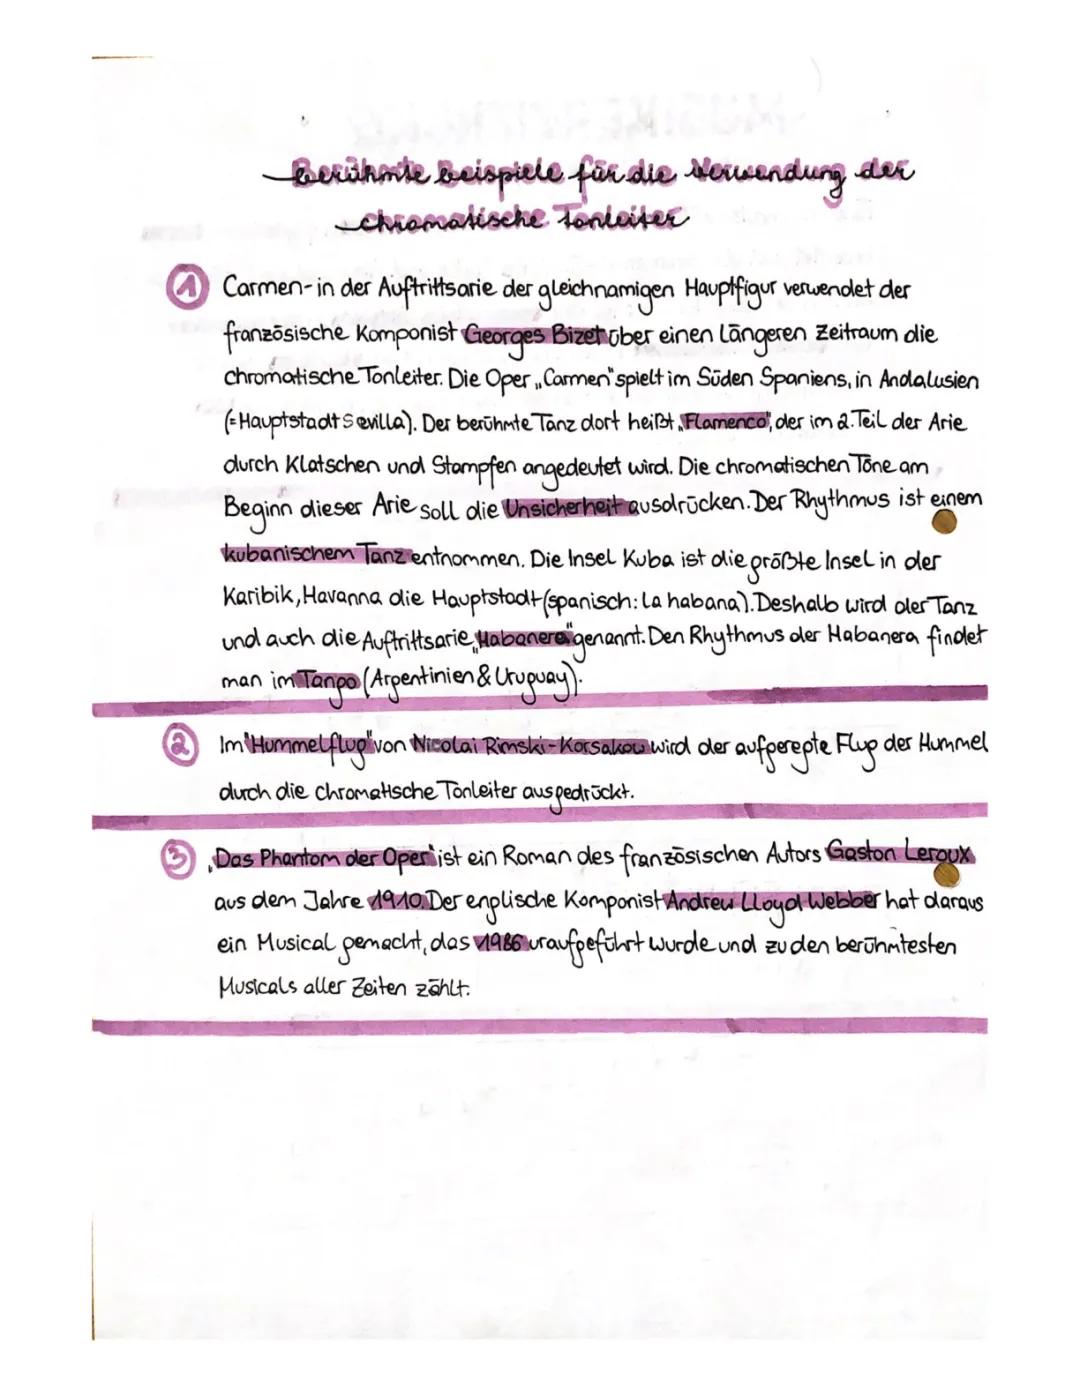 Berühmte Beispiele für die Verwendung der
chromatische Tonleiter
1 Carmen- in der Auftrittsarie der gleichnamigen Hauptfigur verwendet der
französische Komponist Georges Bizet über einen längeren Zeitraum die
chromatische Tonleiter. Die Oper „Carmen" spielt im Süden Spaniens, in Andalusien
(=Hauptstadt Sevilla). Der berühmte Tanz dort heißt „Flamenco", der im 2. Teil der Arie
durch Klatschen und Stampfen angedeutet wird. Die chromatischen Töne am
Beginn dieser Arie soll die Unsicherheit ausdrücken. Der Rhythmus ist einem
kubanischem Tanz entnommen. Die Insel Kuba ist die größte Insel in der
Karibik, Havanna die Hauptstadt (spanisch: la habana). Deshalb wird der Tanz
und auch die Auftrittsarie „Habanera" genannt. Den Rhythmus der Habanera findet
man im Tango (Argentinien & Uruguay).
2 Im "Hummelflug" von Nicolai Rimski-Korsakow wird der aufgeregte Flug der Hummel
durch die chromatische Tonleiter ausgedrückt.
3 „Das Phantom der Oper" ist ein Roman des französischen Autors Gaston Leroux
aus dem Jahre 1910. Der englische Komponist Andrew Lloyd Webber hat daraus
ein Musical gemacht, das 1986 uraufgeführt wurde und zu den berühmtesten
Musicals aller Zeiten zählt.